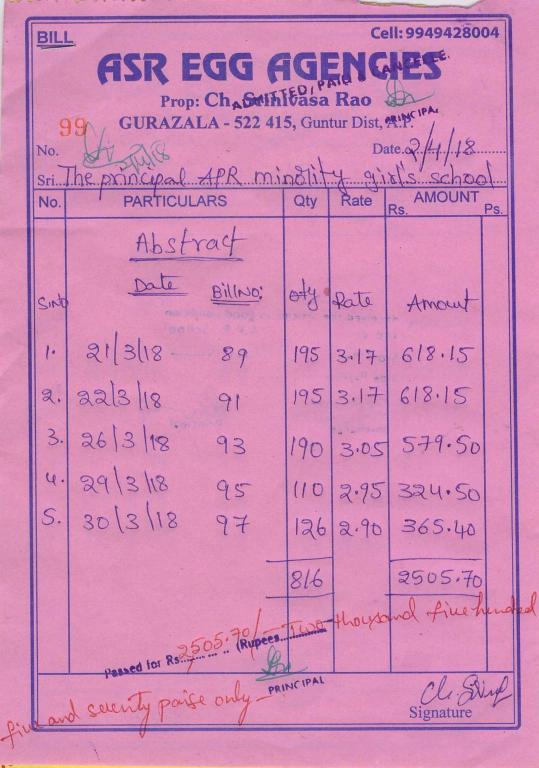 BILL
Cell: 9949428004
ASR EGG AGENCIES
ADMITTED, PAID & CANCELLE.
Prop: Ch. Srinivasa Rao
PRINCIPAL
GURAZALA - 522 415, Guntur Dist, A.P.
No. 99
Date. 2/4/18
Sri. The principal APR minority girl's school
No. PARTICULARS Qty Rate AMOUNT
Rs. Ps.
Abstract
S.No Date Bill No: Qty Rate Amount
1. 21/3/18 89 195 3.17 618.15
2. 22/3/18 91 195 3.17 618.15
3. 26/3/18 93 190 3.05 579.50
4. 29/3/18 95 110 2.95 324.50
5. 30/3/18 97 126 2.90 365.40
816 2505.70
Passed for Rs. 2505.70/- (Rupees Two thousand five hundred
five and seventy paise only
PRINCIPAL
Signature